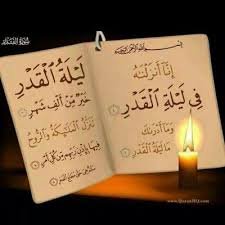 سورة القدر
بسم الله الرحمن الرحيم
إِنَّا أَنزَلْنَهُ
فِى لَيْلَةِ الْقَدْرِ
وَمَا أَدْرَىكَ
مَا لَيْلَةُ الْقَدْرِ
لَيْلَةُ الْقَدْرِ
خَيْرٌ مِّنْ أَلْفِ شَهْرٍ
تَنَزَّلُ الْمَلَئِكَةُ وَالرُّوحُ
فِيهَا بِإِذْنِ رَبِّهِم مِّن كُلِّ أَمْرٍ
سَلَمٌ هِىَ حَتَّى مَطْلَعِ الْفَجْرِ